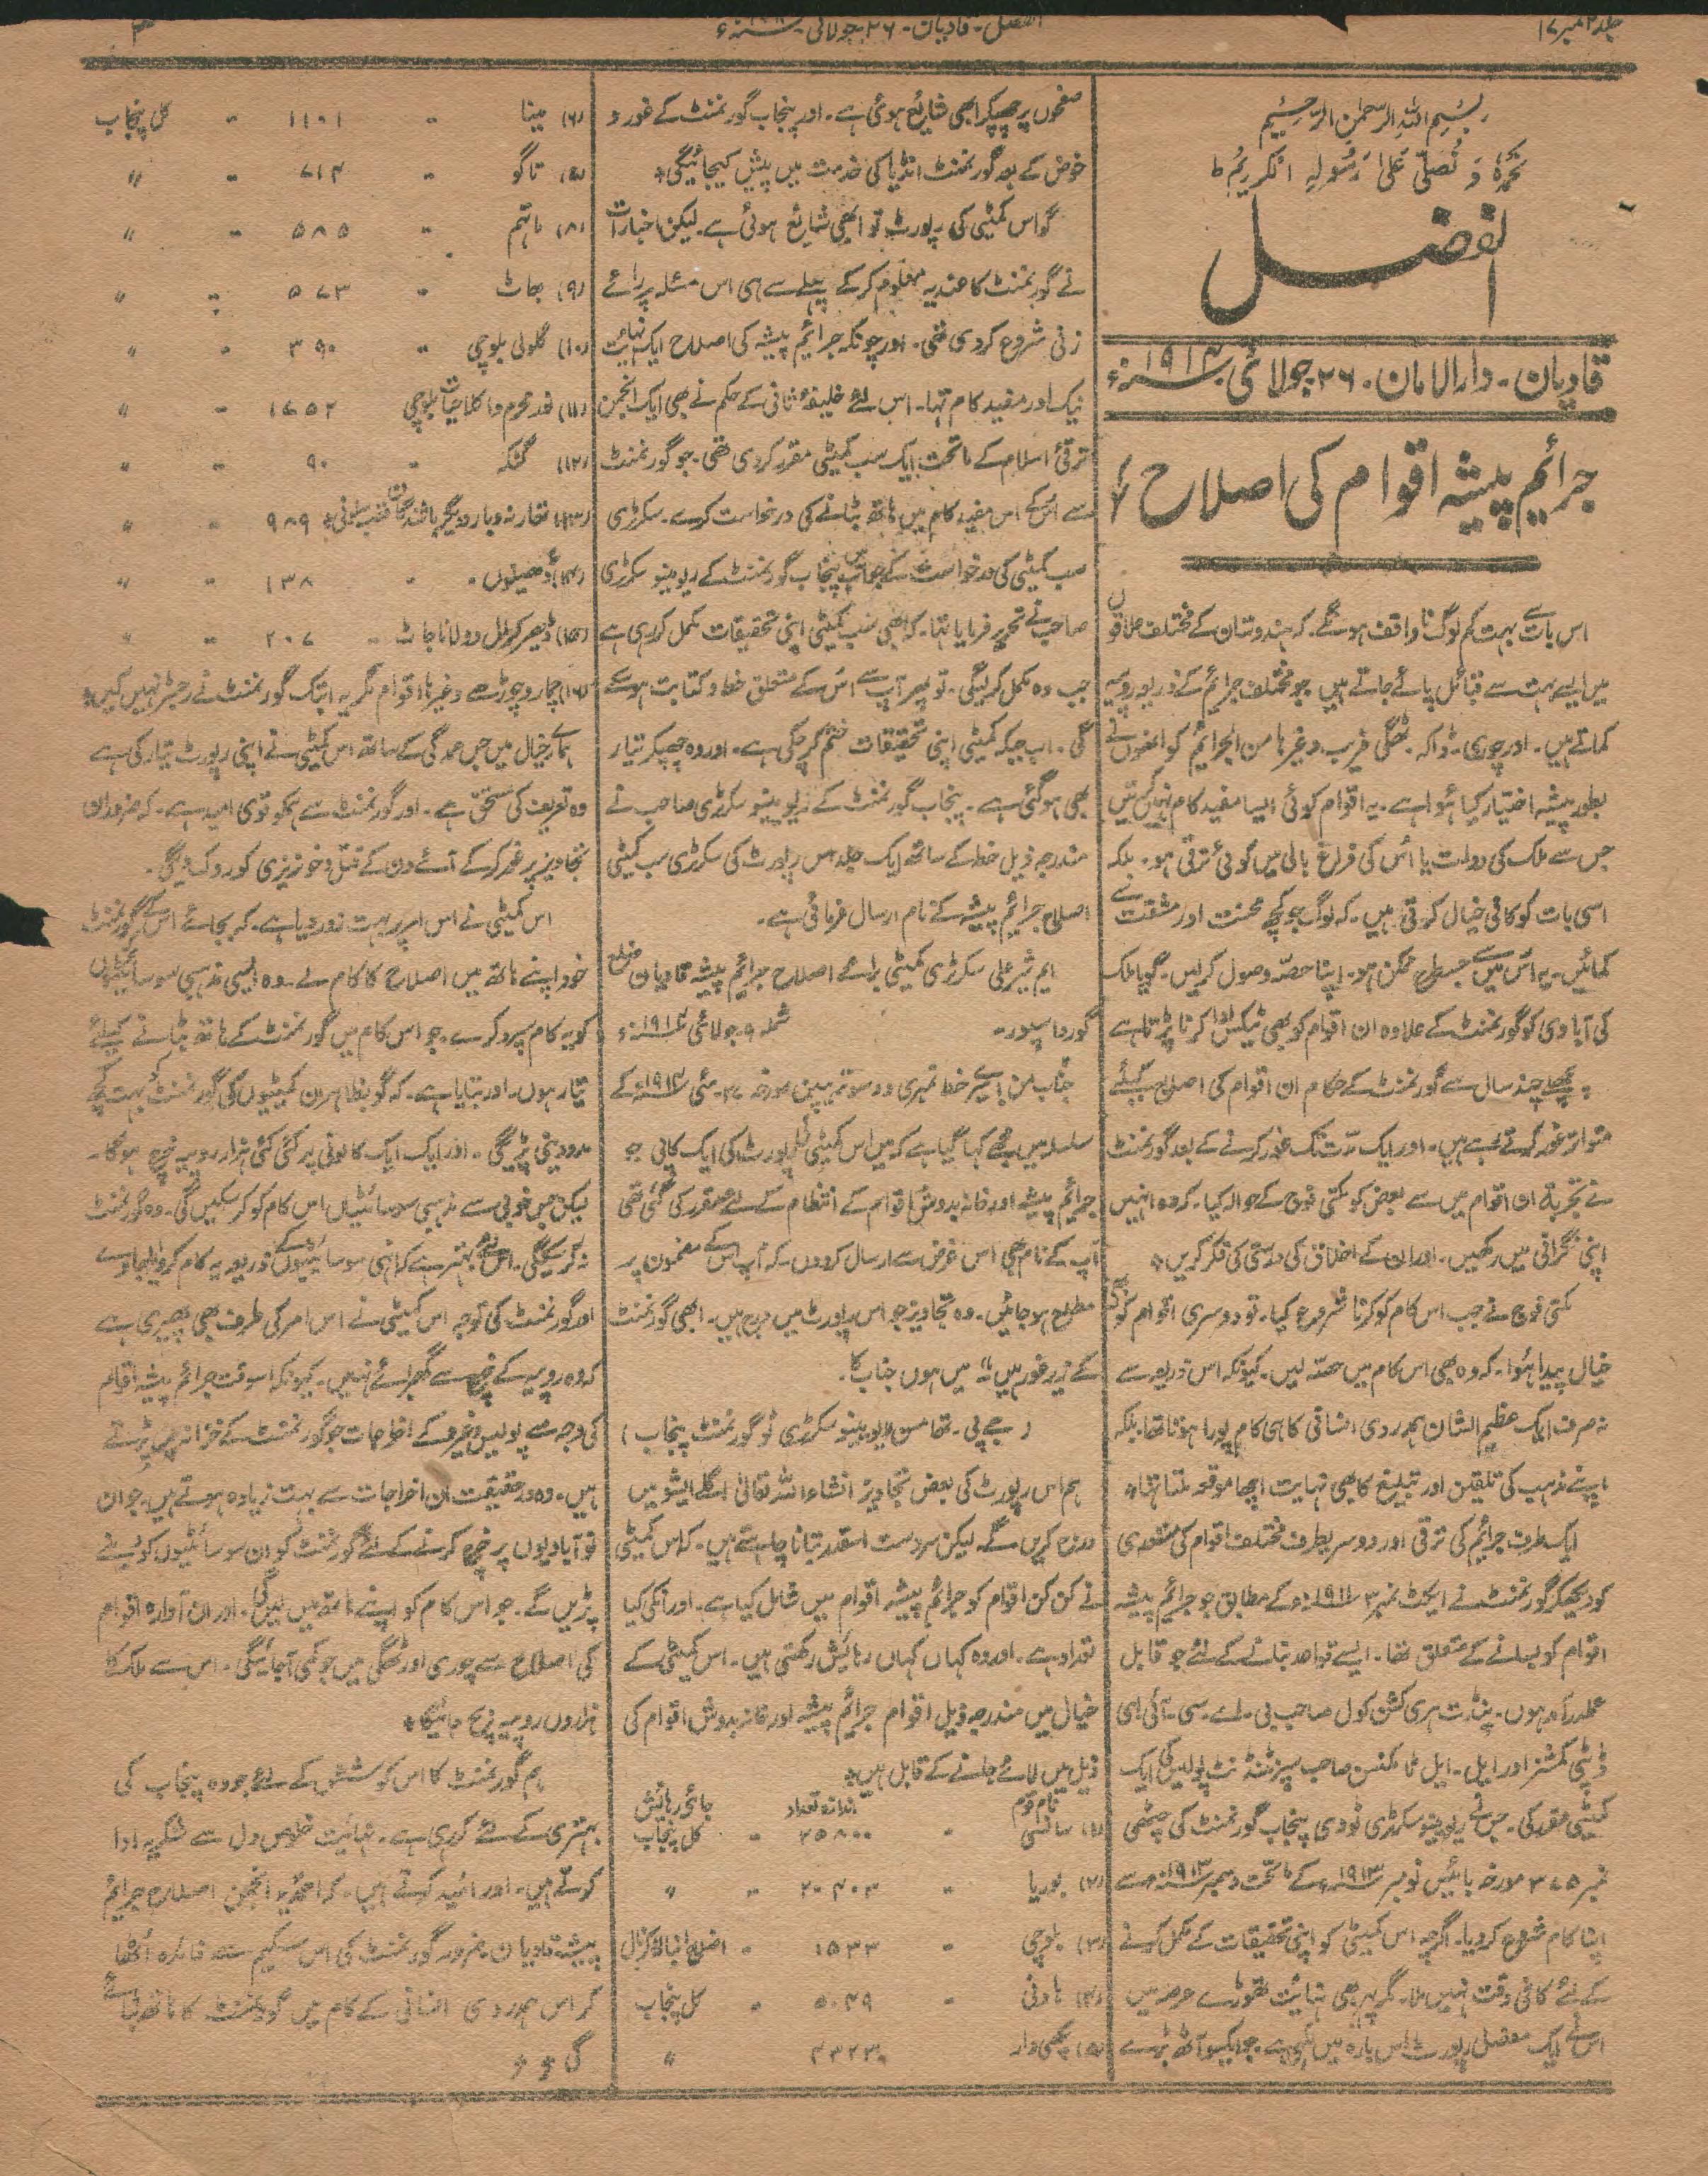 جلد ۲ نمبر ۱۷
الفضل - قادیان - ۲۶ جولائی
۳
بِسْمِ اللہِ الرَّحْمٰنِ الرَّحِیْمِ
نَحْمَدُہٗ وَ نُصَلِّی عَلیٰ رَسُولِہِ الْکَرِیْمِ ط
الفضل
قادیان - دارالامان - ۲۶ جولائی ۱۹۱۴ء
جرائم پیشہ اقوام کی اصلاح
اس بات سے بہت کم لوگ ناواقف ہونگے کہ ہندوستان کے مختلف علاقوں
میں ایسے بہت سے قبائل پائے جاتے ہیں جو مختلف جرائم کے ذریعہ روپیہ
کماتے ہیں - اور چوری - ڈاکہ - ٹھگی فریب وغیرہا من الجرائم کو انھوں نے
بطور پیشہ اختیار کیا ہوا ہے - یہ اقوام کوئی ایسا مفید کام نہیں کرتیں
جس سے ملک کی دولت یا اُس کی فراغ بالی میں کوئی ترقی ہو - بلکہ
اسی بات کو کافی خیال کرتی ہیں - کہ لوگ جو کچھ محنت اور مشقت سے
کمائیں - یہ اس میں سے جسطرح ممکن ہو - اپنا حصّہ وصول کرلیں - گویا ملک
کی آبادی کو گورنمنٹ کے علاوہ ان اقوام کو بھی ٹیکس ادا کرنا پڑتا ہے
پچھلے چند سال سے گورنمنٹ کے حکام ان اقوام کی اصلاح کیلئے
متواتر غور کرتے رہے ہیں - اور ایک مدّت تک غور کرنے کے بعد گورنمنٹ
نے تجربۃً ان اقوام میں سے بعض کو مکتی فوج کے حوالہ کیا - کہ وہ انہیں
اپنی نگرانی میں رکھیں - اور ان کے اخلاق کی درستی کی فکر کریں *
مکتی فوج نے جب اس کام کو کرنا شروع کیا - تو دوسری اقوام کو بھی
خیال پیدا ہوا - کہ وہ بھی اس کام میں حصّہ لیں - کیونکہ اس ذریعہ سے
نہ صرف ایک عظیم الشان ہمدردی انسانی کا ہی کام پورا ہوتا تھا - بلکہ
اپنے مذہب کی تلقین اور تبلیغ کا بھی نہایت اچھا موقعہ ملتا تھا *
ایک طرف جرائم کی ترقی اور دوسری طرف مختلف اقوام کی مستعدی
کو دیکھکر گورنمنٹ نے ایکٹ نمبر ۳ ۱۹۱۱ء کے مطابق جو جرائم پیشہ
اقوام کو بسانے کے متعلق تھا - ایسے قواعد بنانے کے لئے جو قابل
عملدرآمد ہوں - پنڈت ہری کشن کول صاحب بی - اے - سی - آئی ای
ڈپٹی کمشنر اور ایل - ایل ٹامکنس صاحب سپرنٹنڈنٹ پولیس کی ایک
کمیٹی مقرر کی - جس نے ریونیو سکرٹری ٹو دی پنجاب گورنمنٹ کی چٹھی
نمبر ۳۷۵ مورخہ بائیس نومبر ۱۹۱۳ء کے ماتحت دسمبر ۱۹۱۳ء سے
اپنا کام شروع کردیا - اگرچہ اس کمیٹی کو اپنی تحقیقات کے مکمل کرنے
کے لئے کافی وقت نہیں ملا - مگر پھر بھی نہایت تھوڑے عرصہ میں
اس نے ایک مفصل رپورٹ اس بارہ میں لکھی ہے جو ایکسو آٹھ بڑے
صفحوں پر چھپکر ابھی شائع ہوئی ہے - اور پنجاب گورنمنٹ کے غور و
خوض کے بعد گورنمنٹ انڈیا کی خدمت میں پیش کیجائیگی *
گو اس کمیٹی کی رپورٹ تو ابھی شائع ہوئی ہے - لیکن اخبارات
نے گورنمنٹ کا عندیہ معلوم کرکے پہلے سے ہی اس مسئلہ پر رائے
زنی شروع کردی تھی - اور چونکہ جرائم پیشہ کی اصلاح ایک نہایت
نیک اور مفید کام تھا - اس لئے خلیفۂ ثانی کے حکم نے بھی ایک انجمن
ترقیٔ اسلام کے ماتحت ایک سب کمیٹی مقرر کردی تھی - جو گورنمنٹ
سے اس کے اس مفید کام میں ہاتھ بٹانے کی درخواست کرے - سکرٹری
سب کمیٹی کی درخواست کے جواب میں پنجاب گورنمنٹ کے ریونیو سکرٹری
صاحب نے تحریر فرمایا تھا - کہ ابھی سب کمیٹی اپنی تحقیقات مکمل کررہی ہے
جب وہ مکمل کرلیگی - تو پھر آپ سے اس کے متعلق خط و کتابت ہوسکے
گی - اب جبکہ کمیٹی اپنی تحقیقات ختم کرچکی ہے - اور وہ چھپکر تیار
بھی ہوگئی ہے - پنجاب گورنمنٹ کے ریونیو سکرٹری صاحب نے
مندرجہ ذیل خط کے ساتھ ایک جلد اس رپورٹ کی سکرٹری سب کمیٹی
اصلاح جرائم پیشہ کے نام ارسال فرمائی ہے -
ایم شیر علی سکرٹری کمیٹی برائے اصلاح جرائم پیشہ قادیان ضلع
گورداسپور - شملہ ۹ جولائی ۱۹۱۴ء
جناب من! آپکے خط نمبری دو سو تریپن مورخہ مئی ۱۹۱۴ء کے
سلسلہ میں مجھے کہا گیا ہے کہ میں اس کمیٹی کی رپورٹ کی ایک کاپی جو
جرائم پیشہ اور خانہ بدوش اقوام کے انتظام کے لئے مقرر کی گئی تھی
آپ کے نام بھی اس غرض سے ارسال کردوں - کہ آپ اس کے مضمون پر
مطلع ہوجائیں - وہ تجاویز جو اس رپورٹ میں درج ہیں - ابھی گورنمنٹ
کے زیر غور ہیں" میں ہوں جناب کا -
( جے پی - تھامسن ریونیو سکرٹری ٹو گورنمنٹ پنجاب )
ہم اس رپورٹ کی بعض تجاویز انشاء اللہ تعالیٰ اگلے ایشو میں
درج کریں گے - لیکن سردست اسقدر بتانا چاہتے ہیں - کہ اس کمیٹی
نے کن کن اقوام کو جرائم پیشہ اقوام میں شامل کیا ہے - اور انکی کیا
تعداد ہے - اور وہ کہاں کہاں رہائش رکھتی ہیں - اس کمیٹی کے
خیال میں مندرجہ ذیل اقوام جرائم پیشہ اور خانہ بدوش اقوام کی
ذیل میں لائے جانے کے قابل ہیں *
نام قوم اندازہ تعداد جائی رہائش
(۱) سانسی - ۲۵۸۰۰ - کل پنجاب
(۲) بوریا - ۲۰۴۰۳ - "
(۳) بلوچی - ۱۵۳۳ - اضلاع انبالہ و کرنال
(۴) ہارنی - ۵۰۴۹ - کل پنجاب
(۵) پکھی وار ۴۳۲۳ "
(۶) مینا - ۱۱۰۱ - کل پنجاب
(۷) تاگو - ۷۱۴ - "
(۸) ماہتم - ۵۸۵ - "
(۹) جاٹ - ۵۷۳ - "
(۱۰) گلولی بلوچی - ۳۹۰ - "
(۱۱) بلوچی ۱۷۵۲ - "
(۱۲) گنگہ - ۹۰ - "
(۱۳) ۹۸۹ - "
(۱۴) ۱۳۸ - "
(۱۵) جاٹ - ۲۰۷ - "
(۱۶) چمار و چوڑھے وغیرہا اقوام مگر یہ ابتک گورنمنٹ نے رجسٹر نہیں کیں *
ہمارے خیال میں جس عمدگی کے ساتھ اس کمیٹی نے اپنی رپورٹ تیار کی ہے
وہ تعریف کی مستحق ہے - اور گورنمنٹ سے ہمکو قوی امید ہے - کہ ضرور ان
تجاویز پر غور کرکے آئے دن کے قتل و خونریزی کو روک دیگی -
اس کمیٹی نے اس امر پر بہت زور دیا ہے - کہ بجائے اس کے گورنمنٹ
خود اپنے ہاتھ میں اصلاح کا کام لے - وہ ایسی مذہبی سوسائٹیوں
کو یہ کام سپرد کرے - جو اس کام میں گورنمنٹ کے ہاتھ بٹانے کیلئے
تیار ہوں - اور بتایا ہے - کہ گو بظاہر ان کمیٹیوں کی گورنمنٹ کو بہت کچھ
مدد دینی پڑیگی - اور ایک ایک کالونی پر کئی کئی ہزار روپیہ خرچ ہوگا -
لیکن جس خوبی سے مذہبی سوسائٹیاں اس کام کو کرسکیں گی - وہ گورنمنٹ
نہ کرسکیگی - اس لئے بہتر ہے کہ انہی سوسائٹیوں کے ذریعہ یہ کام کروایا جاوے
اور گورنمنٹ کی توجہ اس کمیٹی نے اس امر کی طرف بھی پھیری ہے
کہ وہ روپیہ کے خرچ سے گھبرائے نہیں - کیونکہ اسوقت جرائم پیشہ اقوام
کی وجہ سے پولیس وغیرہ کے اخراجات جو گورنمنٹ کے خزانہ پر پڑتے
ہیں - وہ درحقیقت ان اخراجات سے بہت زیادہ ہوتے ہیں - جو ان
نوآبادیوں پر خرچ کرنے کے لئے گورنمنٹ کو ان سوسائٹیوں کو دینے
پڑیں گے - جو اس کام کو اپنے ہاتھ میں لیں گی - اور ان آوارہ اقوام
کی اصلاح سے چوری اور ٹھگی میں جو کمی آجائیگی - اس سے ملک کا
ہزاروں روپیہ بچ جائیگا *
ہم گورنمنٹ کا اس کوشش کے لئے جو وہ پنجاب کی
بہتری کے لئے کررہی ہے - نہایت خلوص دل سے شکریہ ادا
کرتے ہیں - اور امید کرتے ہیں - کہ احمدیہ انجمن اصلاح جرائم
پیشہ قادیان ضرور گورنمنٹ کی اس سکیم سے فائدہ اُٹھا
کر اس ہمدردی انسانی کے کام میں گورنمنٹ کا ہاتھ بٹائے
گی * *